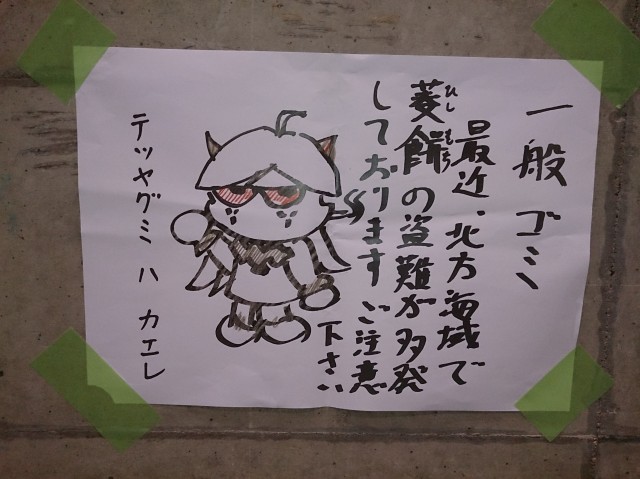 一般ゴミ
最近、北方海域で
菱餅の盗難が多発
ひし
もち
しております ご注意
下さい
テツヤグミ ハ カエレ